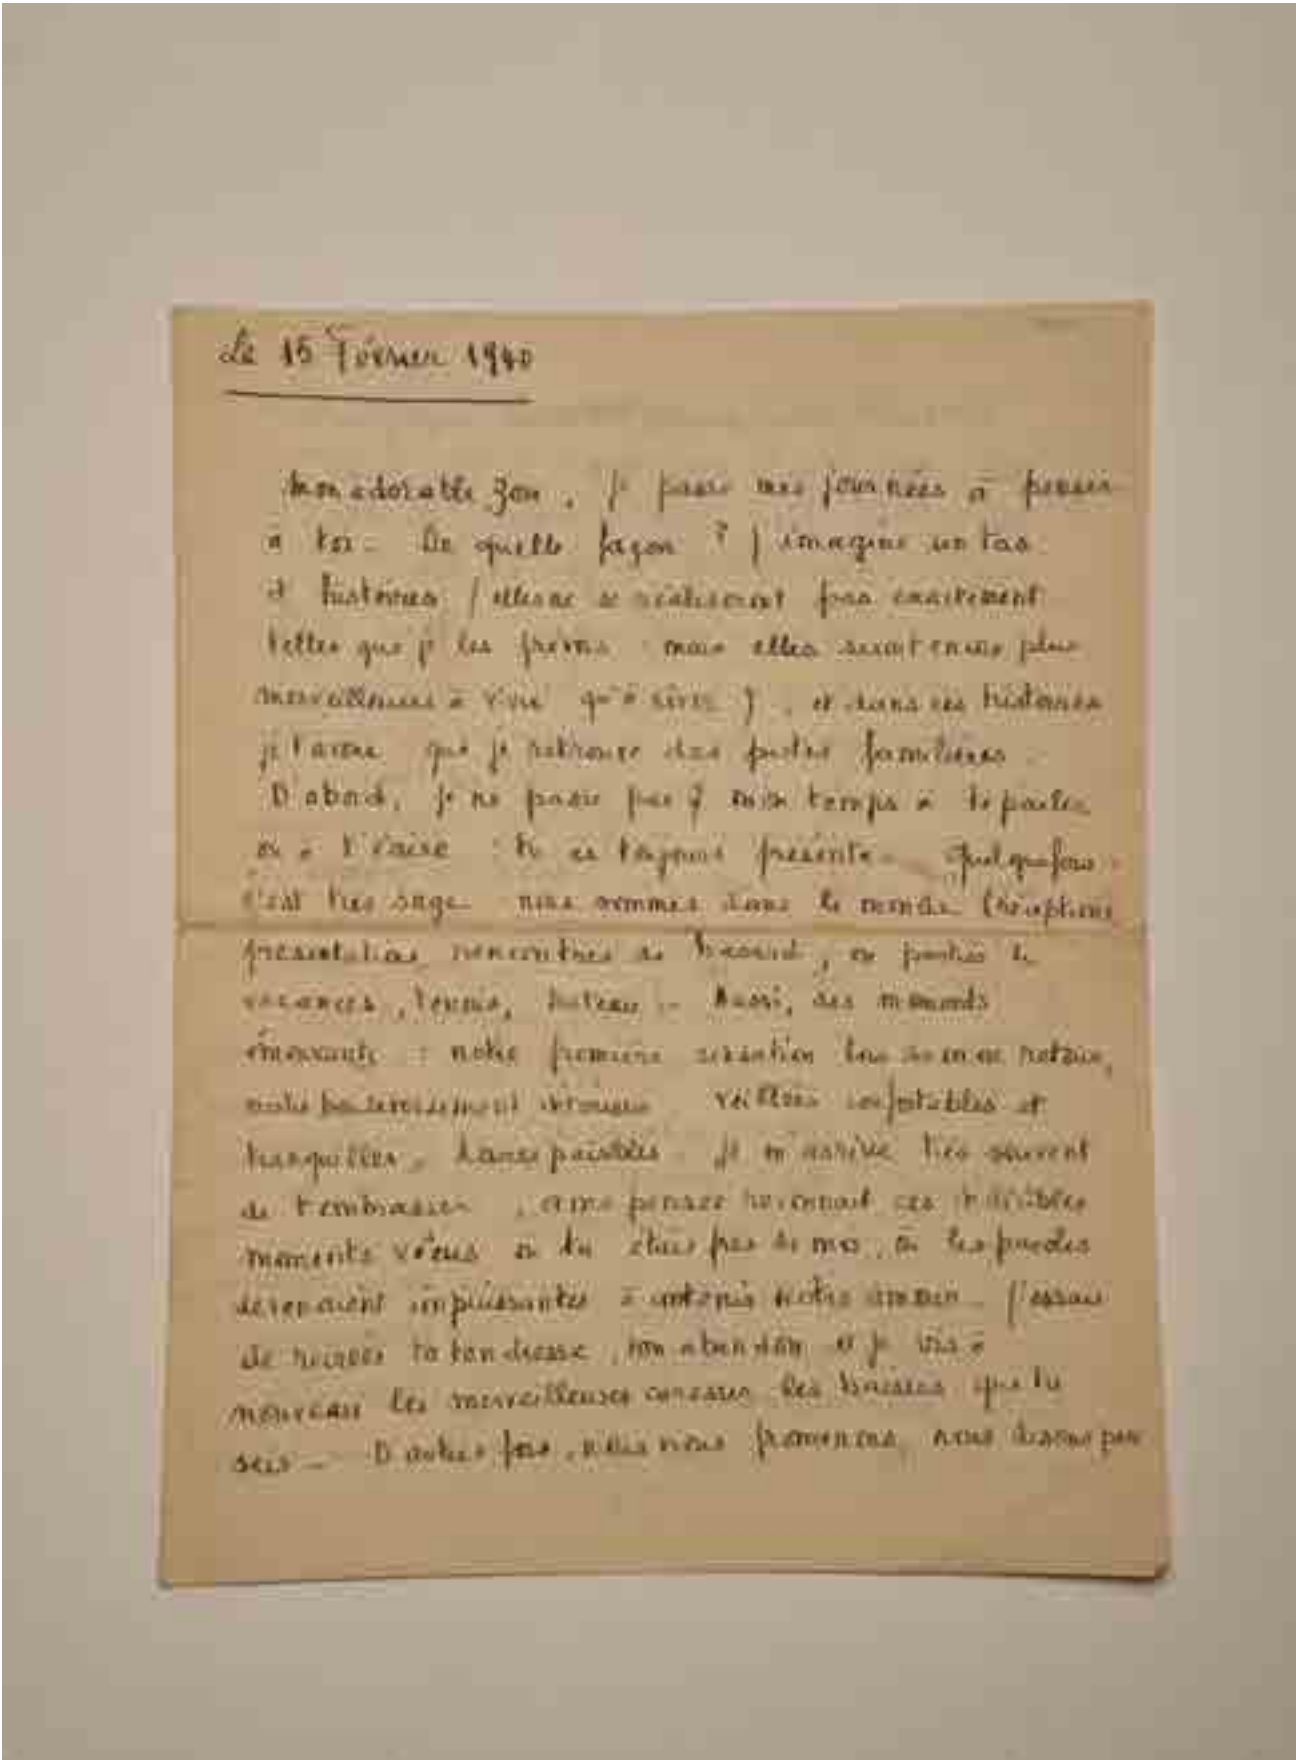 Le 15 Février 1940
Mon adorable Zou, je passe mes journées à penser
à toi. De quelle façon ? J'imagine un tas
d'histoires (elles ne se réaliseront pas exactement
telles que je les prévois mais elles seront encore plus
merveilleuses à vivre qu'à rêver), et dans ces histoires
je t'avoue que je retrouve des pistes familières.
D'abord, je ne passe pas mon temps à te parler
ou à t'écrire : tu es toujours présente. Quelquefois
c'est très sage nous sommes dans le monde (réceptions
présentation rencontres de hasard, ou parties de
vacances, tennis, bateau. Aussi, des moments
émouvants : notre première
notre bouleversement veillées confortables et
tranquilles, paisibles. Il m'arrive très souvent
de t'embrasser, ma pensée reconnait ces
moments vécus où tu étais près de moi, où les paroles
devenaient impuissantes à contenir notre amour. J'essaie
de recréer ta tendresse, ton abandon et je vis à
nouveau les merveilleuses caresses les baisers que tu
sais. D'autres fois, nous nous promenons, nous disons peu